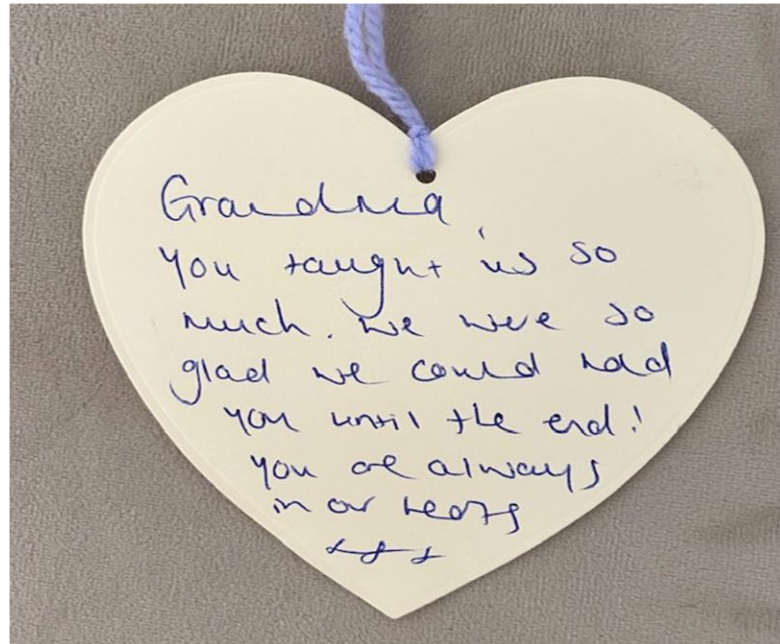 Grandma
You taught us so
much. We were so
glad we could hold
you until the end!
You are always
in our hearts
xxx